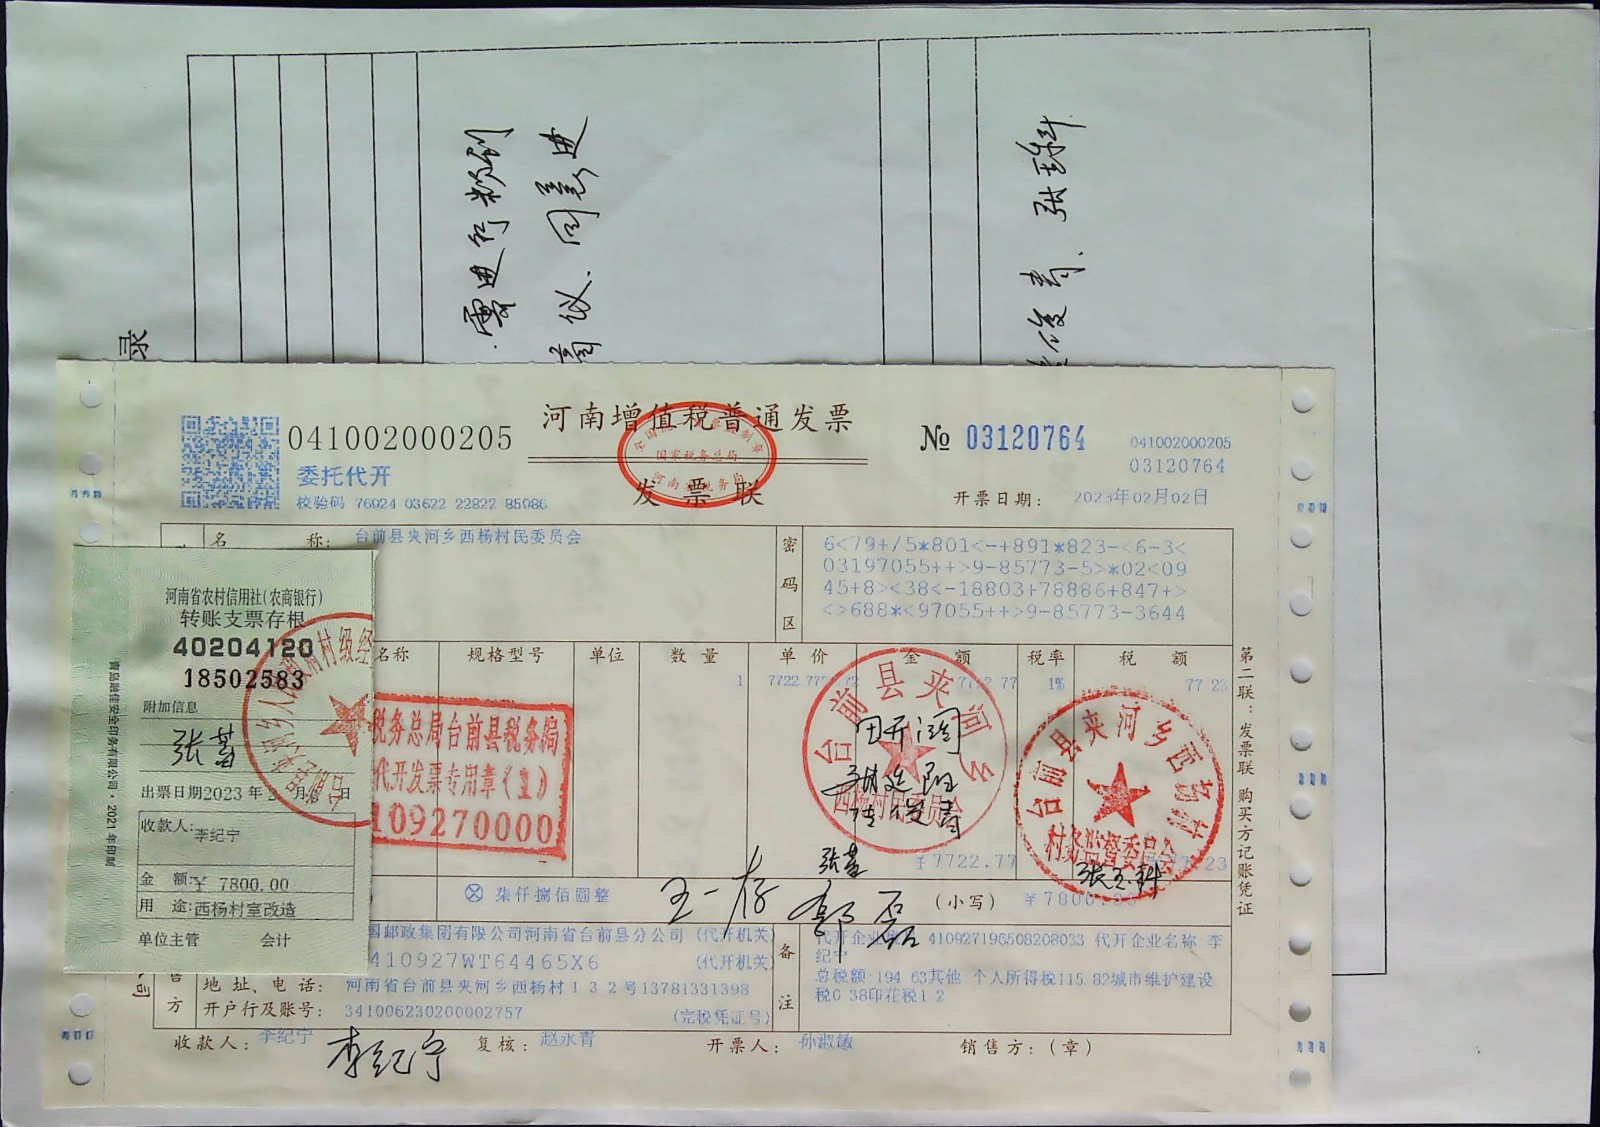 录
需进行粉刷
商议、同意进
俊青、张玉科
河南增值税普通发票
发票联
全国统一发票监制章
国家税务总局
河南省税务局
041002000205
委托代开
校验码 76024 03622 22822 85086
№ 03120764
041002000205
03120764
开票日期： 2023年02月02日
名 称： 台前县夹河乡西杨村民委员会
密码区
6<79+/5*801<-+891*823-<6-3<
03197055++>9-85773-5>*02<09
45+8><38<-18803+78886+847+>
<>688*<97055++>9-85773-3644
名称 规格型号 单位 数量 单价 金额 税率 税额
1 7722.77 1% 77 23
¥7722.77
⊗ 柒仟捌佰圆整
（小写） ¥7800.00
国邮政集团有限公司河南省台前县分公司（代开机关）
410927WT64465X6 （代开机关）
地址、电话： 河南省台前县夹河乡西杨村132号13781331398
开户行及账号： 341006230200002757 （完税凭证号）
售方
备注
410927196508208033 代开企业名称 李
纪宁
总税额:194.63其他 个人所得税115.82城市维护建设
税0.38印花税1.2
收款人： 李纪宁 复核： 赵永青 开票人： 孙淑敏 销售方：（章）
李纪宁
第二联：发票联 购买方记账凭证
税务总局台前县税务局
代开发票专用章（1）
109270000
台前县夹河乡
西杨村民委员会
台前县夹河乡西杨村
村务监督委员会
张玉科
王一存
河南省农村信用社（农商银行）
转账支票存根
40204120
18502583
附加信息
出票日期2023年
收款人： 李纪宁
金 额：¥ 7800.00
用 途：西杨村室改造
单位主管 会计